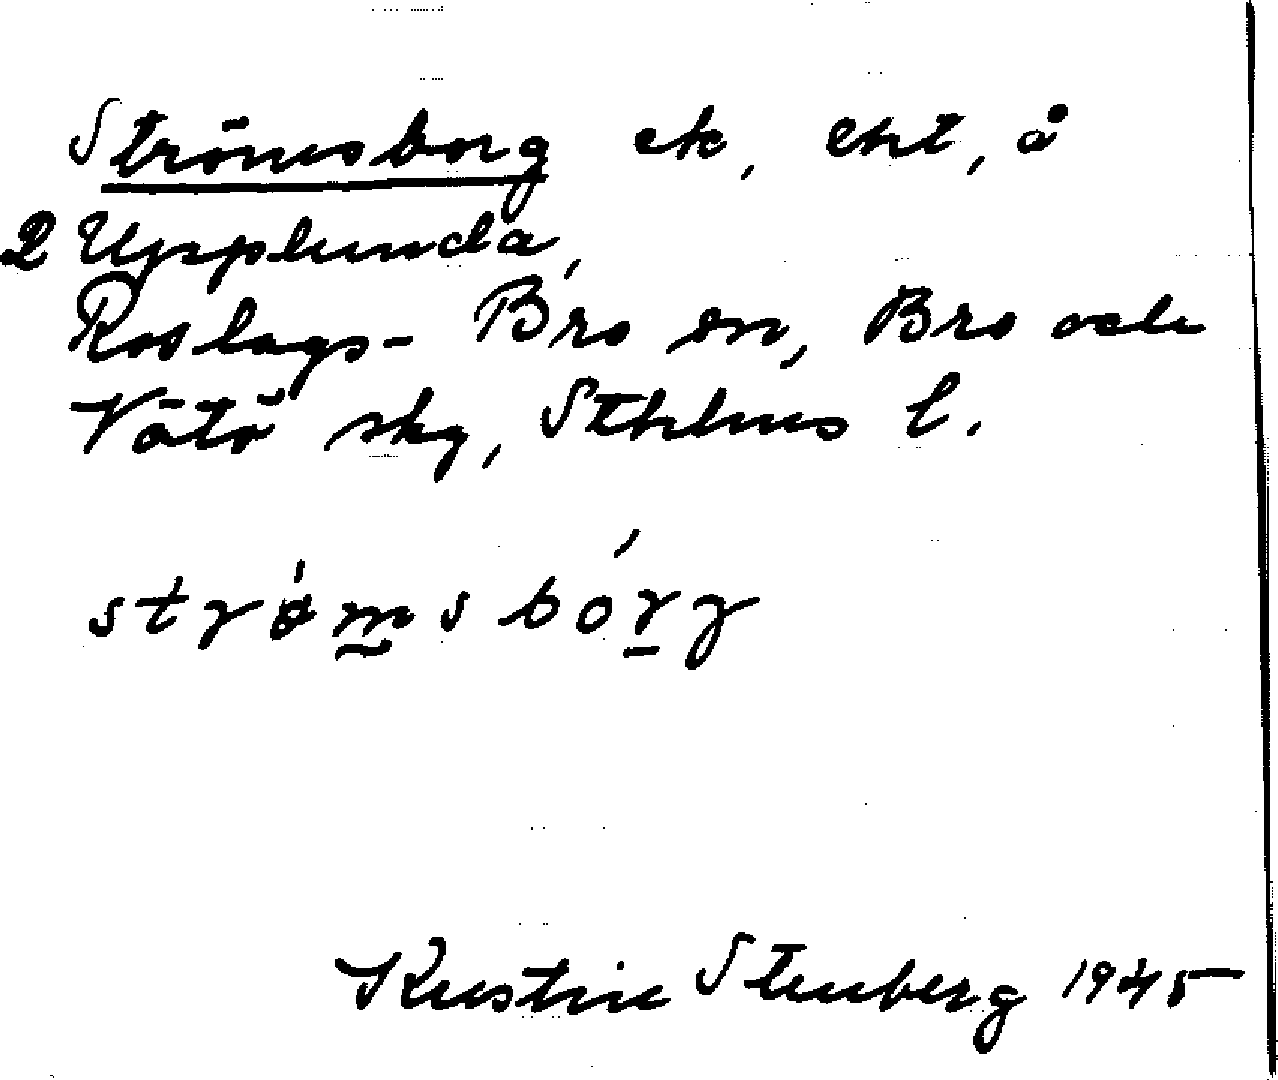 Strömsborg ek, ent, å
2 Upplunda,
Roslags-Bro sn, Bro och
Vätö skg, Sthlms l.
strømsbórg
Kerstin Stenberg 1945